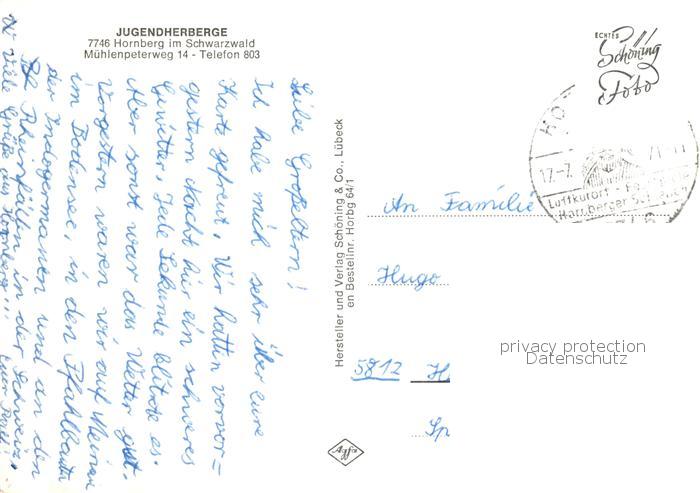 JUGENDHERBERGE
7746 Hornberg im Schwarzwald
Mühlenpeterweg 14 - Telefon 803
Liebe Großeltern!
Ich habe mich sehr über eure
Karte gefreut. Wir hatten vorvor=
gestern Nacht hier ein schweres
Gewitter. Jede Sekunde blitzte es.
Aber sonst war das Wetter gut.
Vorgestern waren wir auf Meinau
im Bodensee, in den Pfahlbauten
der Indogermanen und an den
Rheinfällen in der Schweiz.
Viele Grüße aus Hornberg!!! Euer
Hersteller und Verlag Schöning & Co., Lübeck
en Bestellnr. Horbg 64/1
ECHTES
Schöning
Foto
HO
17.-7.
Luftkurort
Hornberger Schießen
An Familie
Hugo
5812 H
Sp
Agfa
privacy protection
Datenschutz